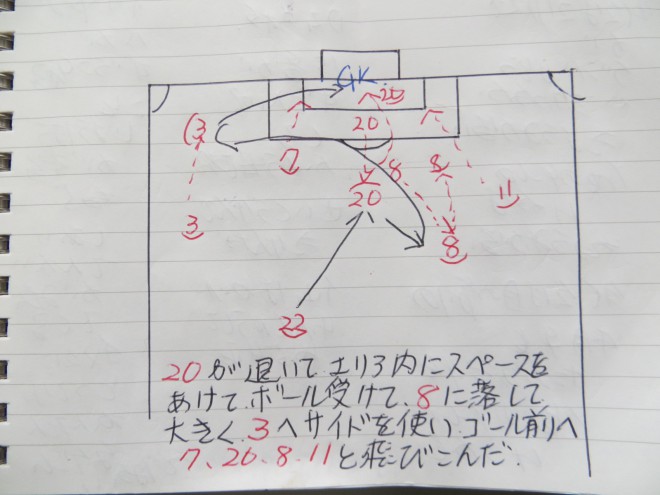 GK
20
(3
20
7
8
8
11
20
3
8
23
20が退いてエリア内にスペースを
あけて、ボール受けて、8に落して
大きく、3へサイドを使い、ゴール前へ
7、20、8、11と飛びこんだ.